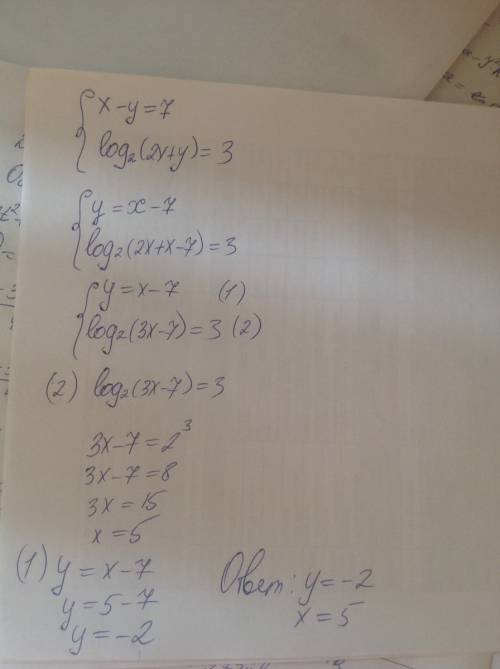 x-y=7
log₂(2x+y)=3
y=x-7
log₂(2x+x-7)=3
y=x-7 (1)
log₂(3x-7)=3 (2)
(2) log₂(3x-7)=3
3x-7=2³
3x-7=8
3x=15
x=5
(1) y=x-7
y=5-7
y=-2
Ответ: y=-2
x=5